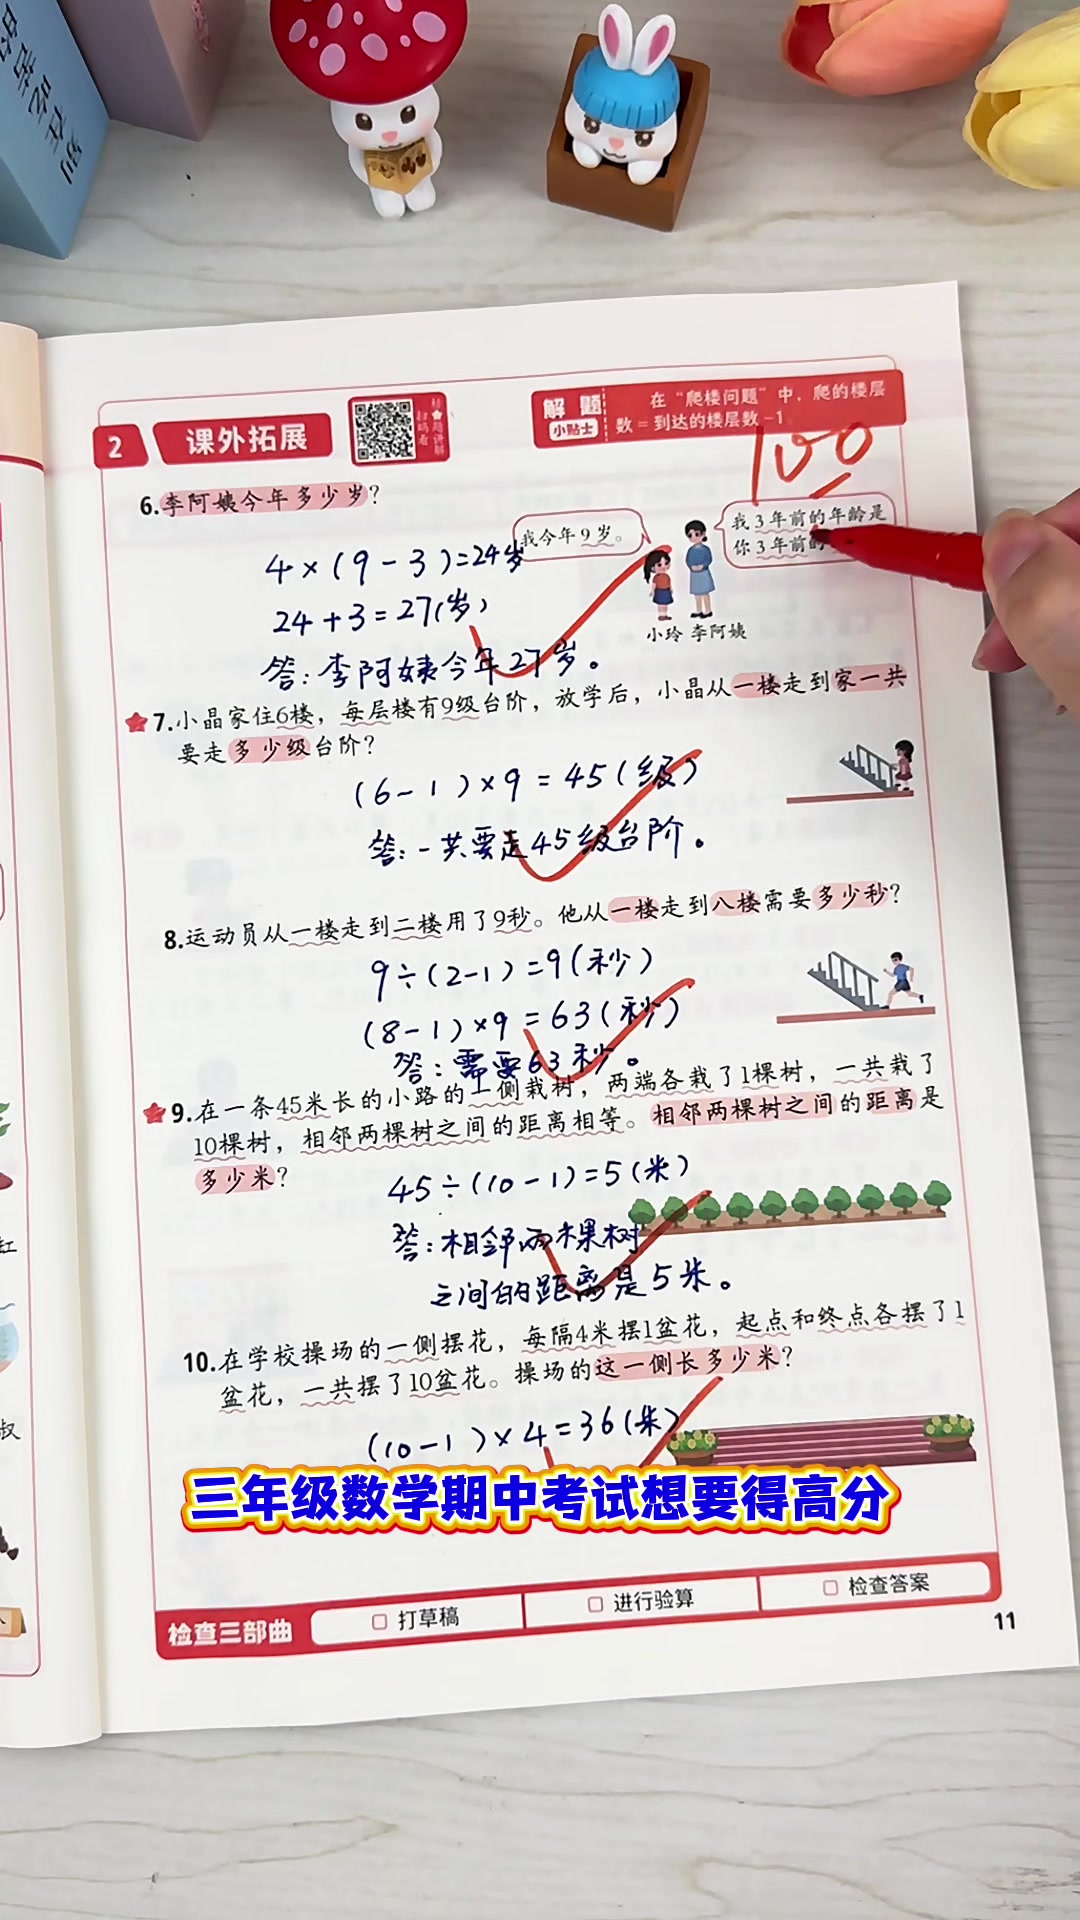 2 课外拓展
解题
小贴士
在“爬楼问题”中，爬的楼层
数=到达的楼层数-1
100
6.李阿姨今年多少岁？
我今年9岁。
我3年前的年龄是
你3年前的
4×(9-3)=24岁
24+3=27(岁)
小玲 李阿姨
答:李阿姨今年27岁。
7.小晶家住6楼，每层楼有9级台阶，放学后，小晶从一楼走到家一共
要走多少级台阶？
(6-1)×9=45(级)
答:一共要走45级台阶。
8.运动员从一楼走到二楼用了9秒。他从一楼走到八楼需要多少秒？
9÷(2-1)=9(秒)
(8-1)×9=63(秒)
答:需要63秒。
9.在一条45米长的小路的一侧栽树，两端各栽了1棵树，一共栽了
10棵树，相邻两棵树之间的距离相等。相邻两棵树之间的距离是
多少米？
45÷(10-1)=5(米)
答:相邻两棵树
之间的距离是5米。
10.在学校操场的一侧摆花，每隔4米摆1盆花，起点和终点各摆了1
盆花，一共摆了10盆花。操场的这一侧长多少米？
(10-1)×4=36(米)
三年级数学期中考试想要得高分
检查三部曲 □ 打草稿 □ 进行验算 □ 检查答案
11